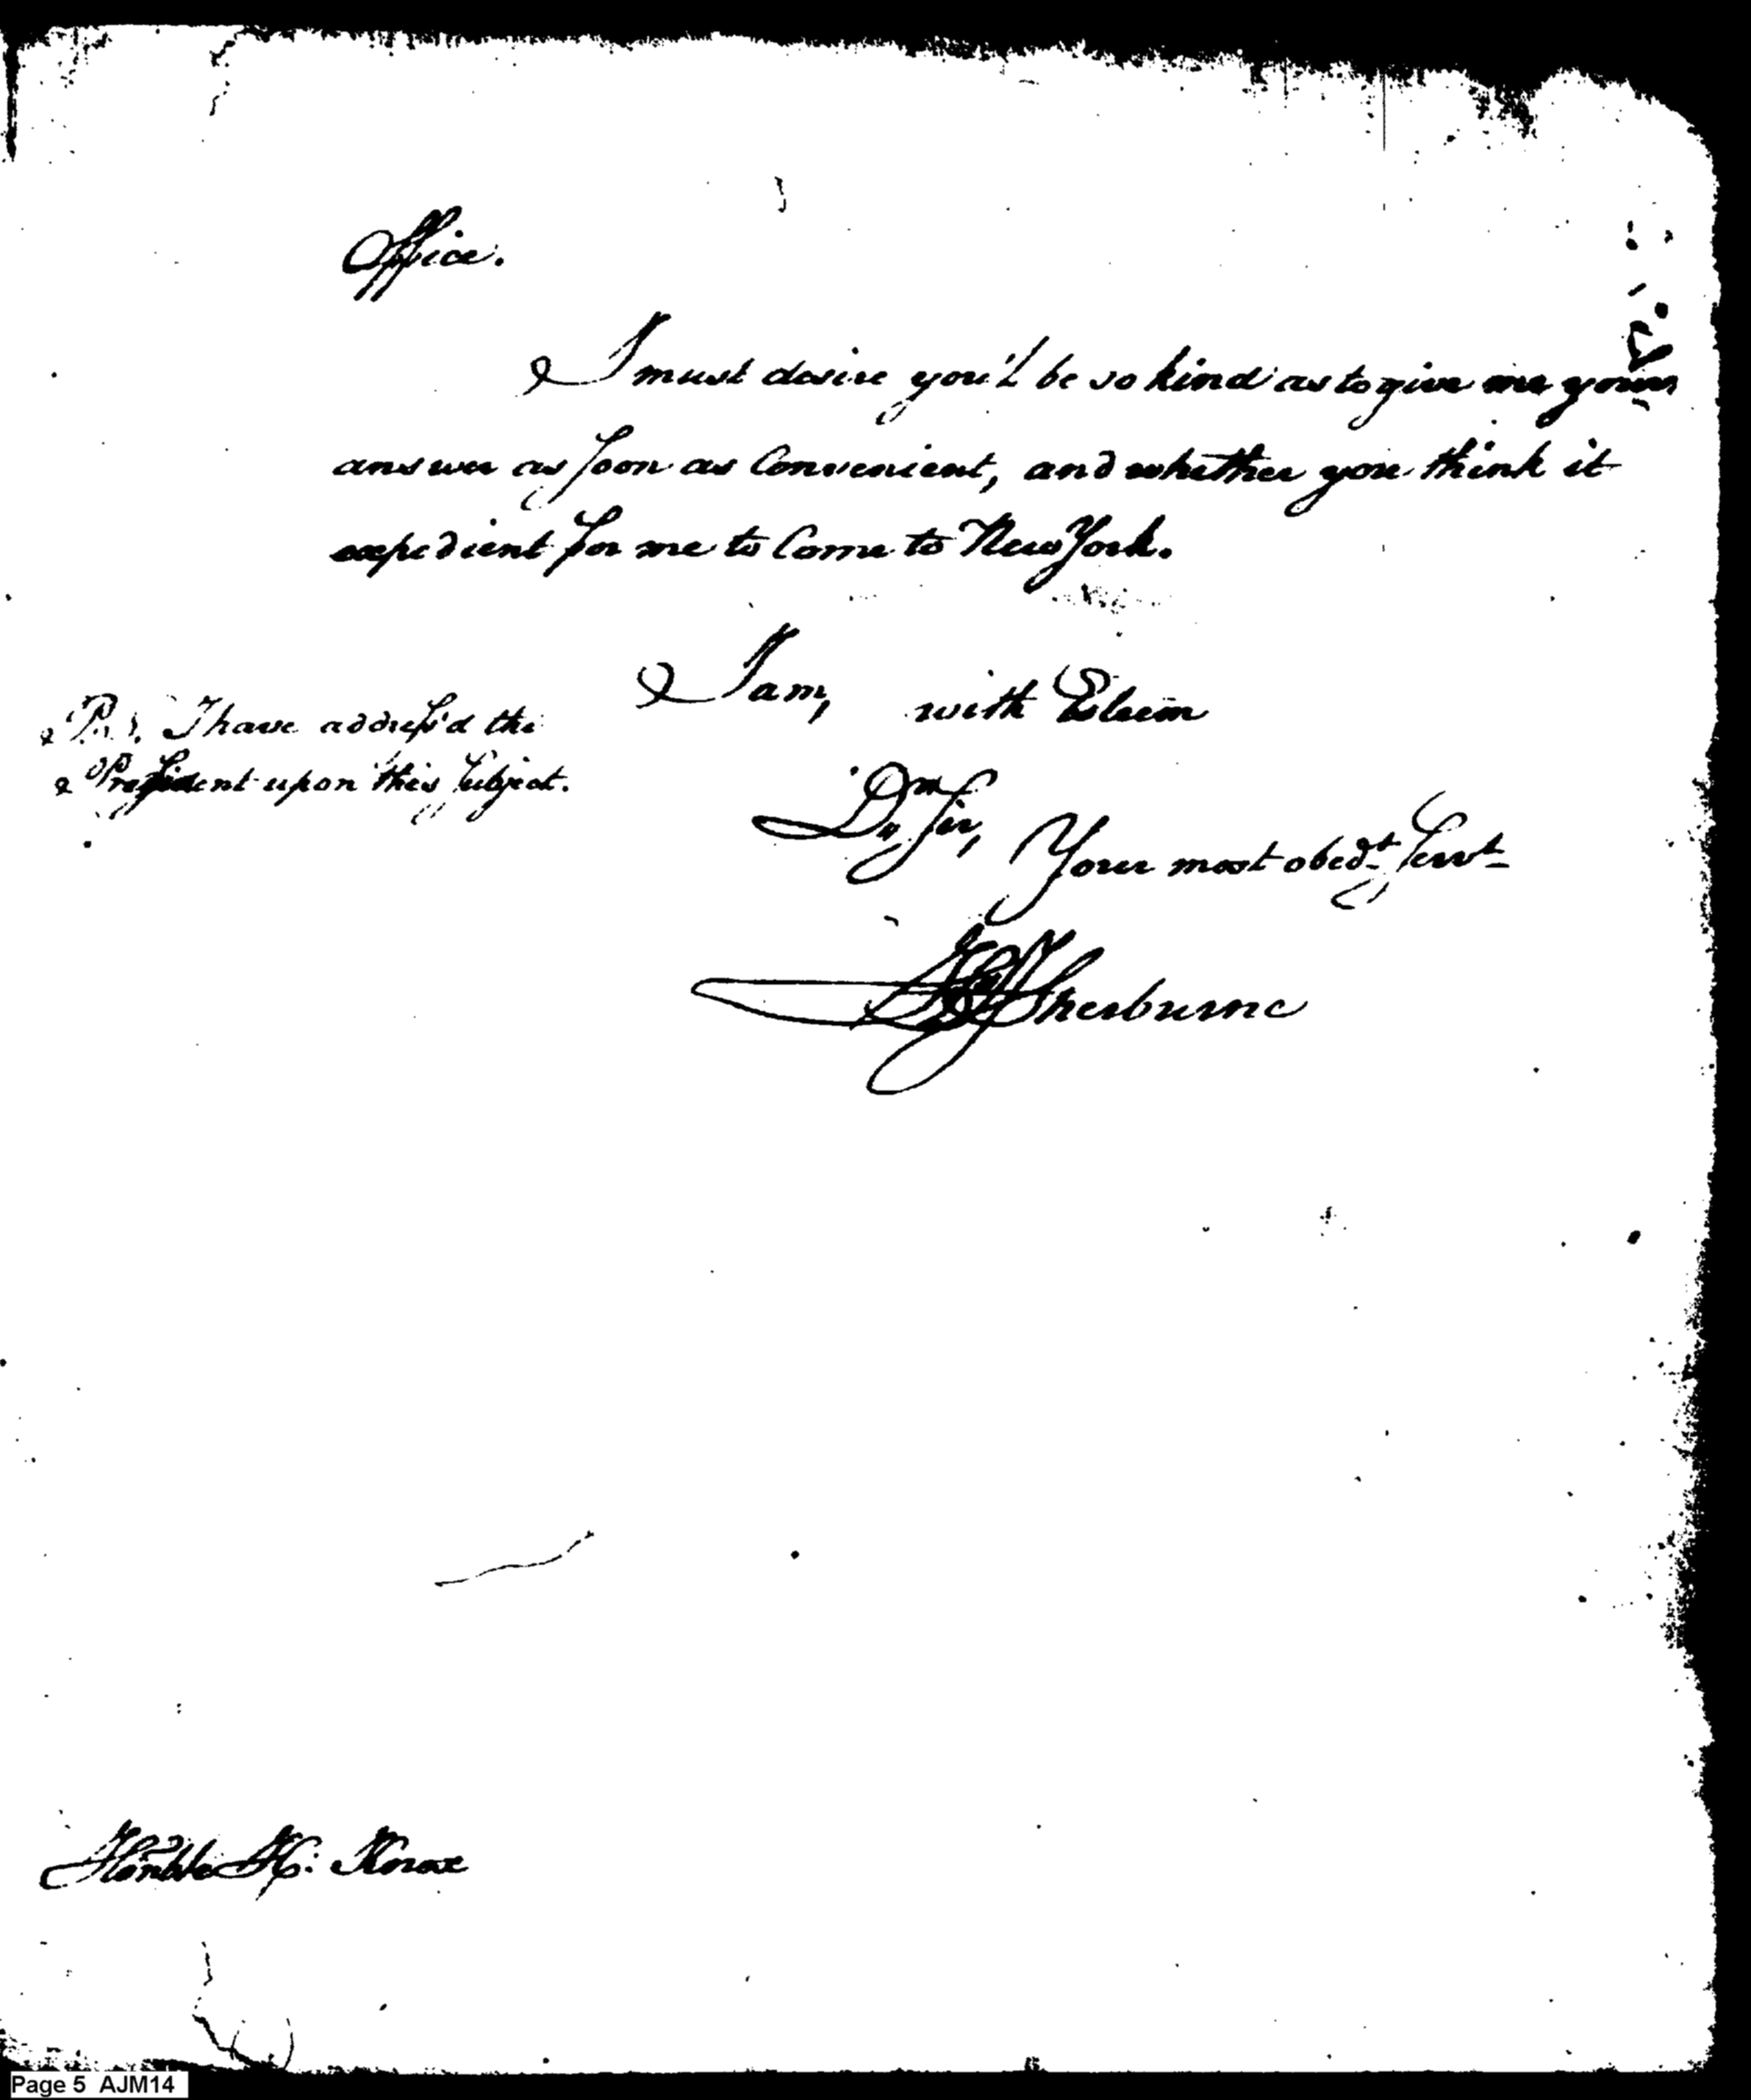 Office.
I must desire you'l be so kind as to give me your
answer as soon as Convenient, and whether you think it
expedient for me to Come to New York.
I am, with Esteem
Dr Sir,
Your most obedt. Servt
Sherburne
P.S. I have address'd the
President upon this Subject.
Honble H: Knox
Page 5 AJM14